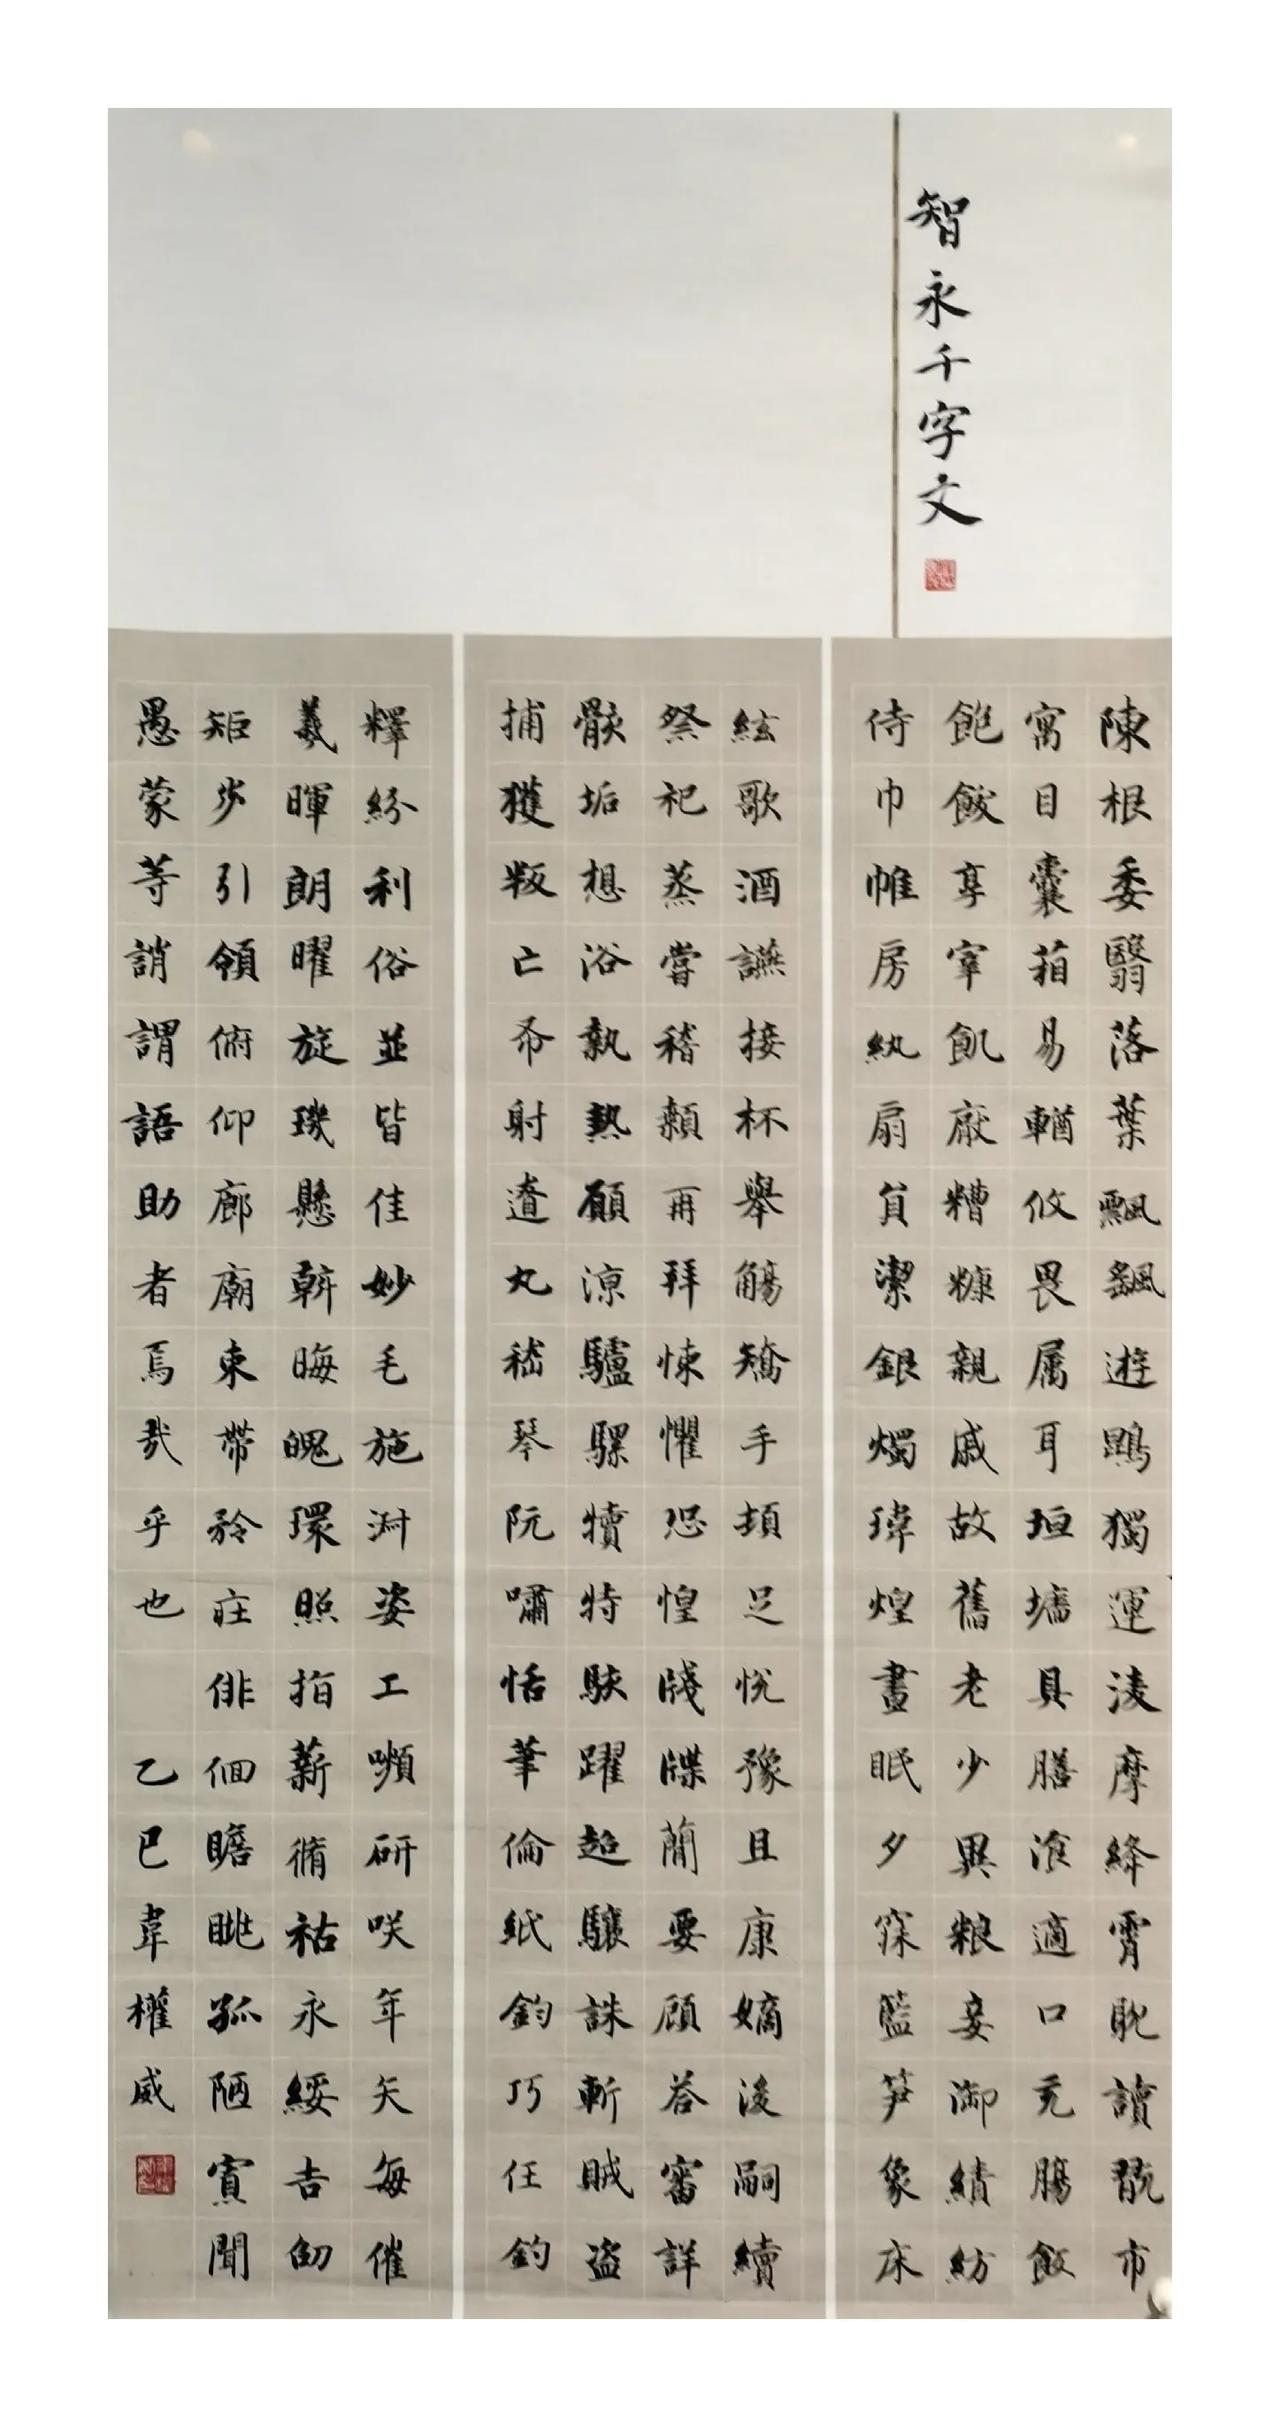 智永千字文
陳根委翳落葉飄颻遊鵾獨運淩摩絳霄耽讀翫市
寓目囊葙易輶攸畏属耳垣墻具膳飡適口充腸飯
飽飫享宰飢厭糟糠親戚故舊老少異粮妾御績紡
侍巾帷房紈扇負潔銀燭瑋煌晝眠夕寐藍笋象床
絃歌酒讌接杯舉觴矯手頓足悅豫且康嫡後嗣續
祭祀蒸嘗稽顙再拜悚懼恐惶牋牒蕳要顧荅審詳
骸垢想浴執熱願涼驢騾犢特駭躍超驤誅斬賊盜
捕獲叛亡布射遼丸嵇琴阮嘯恬筆倫紙鈞巧任釣
釋紛利俗並皆佳妙毛施淑姿工嚬研咲年矢每催
羲暉朗曜旋璣懸斡晦魄環照指薪脩祜永綏吉劭
矩步引領俯仰廊廟束帶矜莊俳佪瞻眺孤陋寡聞
愚蒙等誚謂語助者焉哉乎也 乙巳韋權威